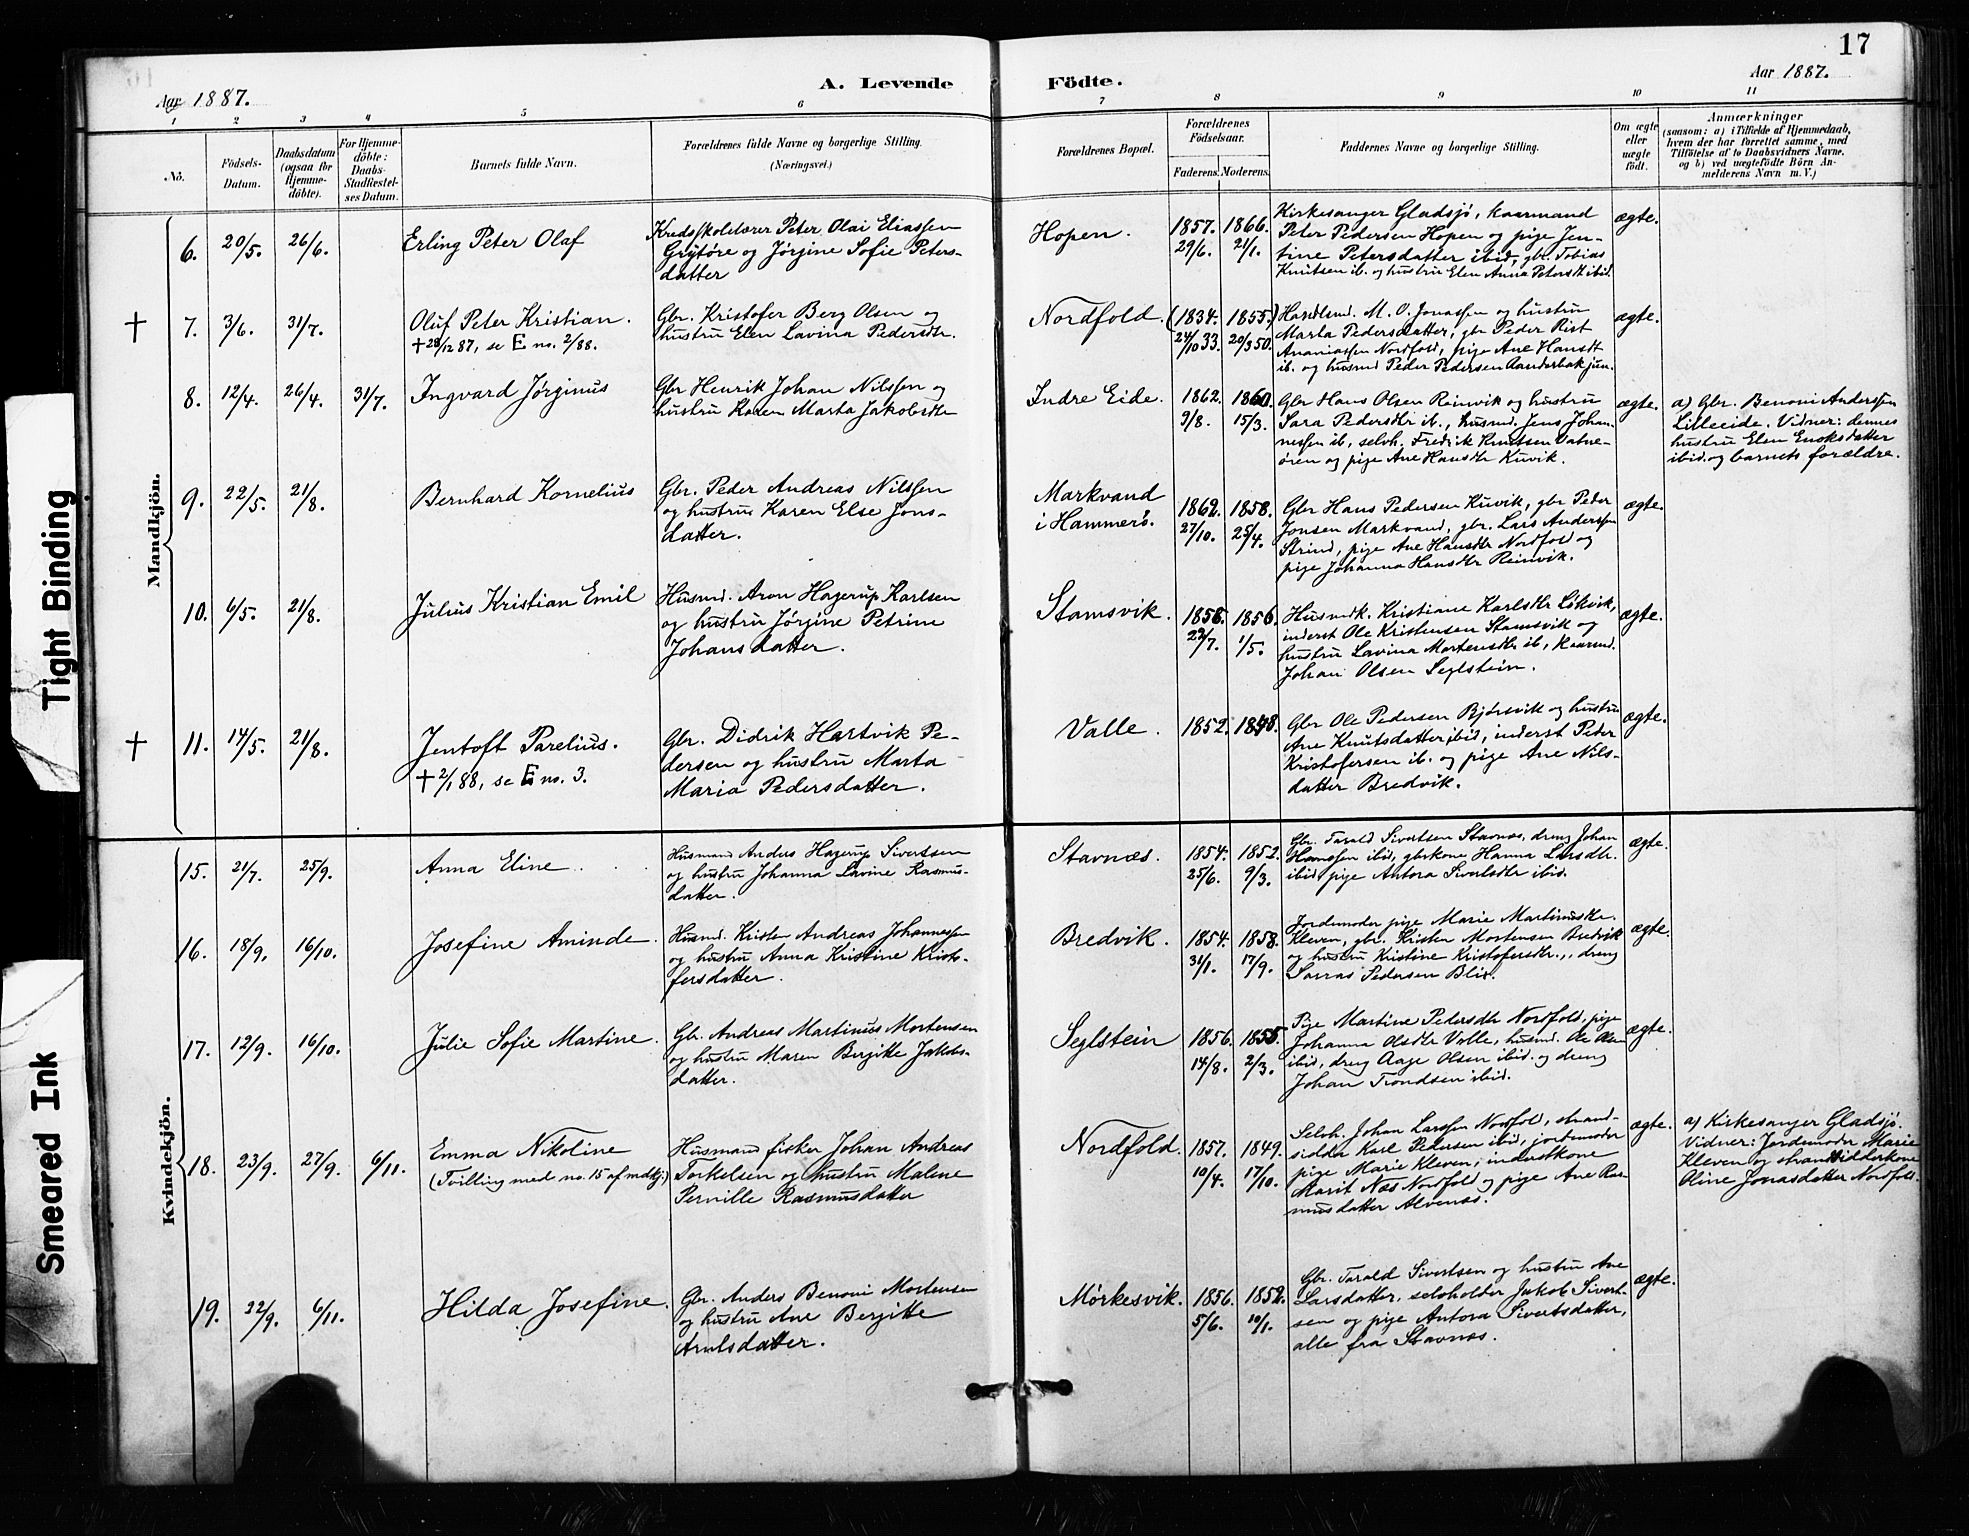 17
Aar 1887.
A. Levende Födte.
Aar 1887.
1 2 3 4 5 6 7 8 9 10 11
No.
Födsels-
Datum.
Daabsdatum
(ogsaa for
Hjemme-
döbte).
For Hjemme-
döbte:
Daabs-
Stadfæstel-
ses Datum.
Barnets fulde Navn.
Forældrenes fulde Navne og borgerlige Stilling.
(Næringsvei.)
Forældrenes Bopæl.
Forældrenes
Födselsaar.
Faderens. Moderens.
Faddernes Navne og borgerlige Stilling.
Om ægte
eller
uægte
födt.
Anmærkninger
(saasom: a) i Tilfælde af Hjemmedaab,
hvem der har forrettet samme, med
Tilföielse af to Daabsvidners Navne.
og b) ved uægtefödte Börn An-
melderens Navn m. V.)
Mandkjön.
6. 20/5. 26/6.
Erling Peter Olaf
Kredsskolelærer Peter Olai Eliassen
Grytøre og Jørgine Sofie Peters-
datter
Hopen.
1857. 1866.
29/6. 21/1.
Kirkesanger Gladsjø, kaarmand
Peter Pedersen Hopen og pige Jen-
tine Petersdatter ibid, gbr. Tobias
Knutsen ib. og hustru Elen Anna Petersdt ibid.
ægte.
† 7. 3/6. 31/7.
Oluf Peter Kristian.
† 28/12 87, se E no. 2/88.
Gbr. Kristofer Berg Olsen og
hustru Elen Lavina Pedersdtr.
Nordfold.
(1834. 1855.)
24/10 33. 20/3 50.
Handelsmd. M. O. Jonassen og hustru
Marta Pedersdatter, gbr Peder Rist
Ananiassen Nordfold, pige Ane Hansdt
ib. og husmd Peder Pedersen Aanderbak jun.
ægte.
8. 12/4. 26/4. 31/7.
Ingvard Jørginus
Gbr Henrik Johan Nilssen og
hustru Karen Marta Jakobsdtr
Indre Eide.
1862. 1860.
9/8. 15/3.
Gbr Hans Olsen Reinvik og hustru
Sara Pedersdtr ib., husmd. Jens Johan-
nessen ib, selvh. Fredrik Knutsen Vatne-
ören og pige Ane Hansdtr Kuvik.
ægte.
a) Gbr. Benoni Anderssen
Lilleeide. Vidner: dennes
hustru Elen Enoksdatter
ibid. og barnets forældre.
9. 22/5. 21/8.
Bernhard Kornelius
Gbr. Peder Andreas Nilssen
og hustru Karen Else Jons-
datter.
Markvand
i Hammerö.
1862. 1858.
27/10. 25/4.
Gbr Hans Pedersen Kuvik, gbr Peder
Jonsen Markvand, gbr. Lars Anderssen
Strind, pige Ane Hansdtr Nordfold og
pige Johanna Hansdtr Reinvik.
ægte.
10. 6/5. 21/8.
Julius Kristian Emil
Husmd. Aron Hagerup Karlsen
og hustru Jørgine Petrine
Johansdatter.
Stamsvik.
1858. 1856.
23/7. 1/5.
Husmdk. Kristiane Karlsdtr Løkvik,
inderst Ole Kristensen Stamsvik og
hustru Lavina Mortensdtr ib, Kaarmd.
Johan Olsen Seglstein.
ægte.
† 11. 14/5. 21/8.
Jentoft Parelius.
† 2/1 88, se E no. 3.
Gbr. Didrik Hartvik Pe-
dersen og hustru Marta
Maria Pedersdatter.
Valle.
1852. 1848.
Gbr Ole Pedersen Bjørsvik og hustru
Ane Knutsdatter ibid, inderst Peter
Kristofersen ib. og pige Ane Nils-
datter Bredvik.
ægte.
Kvindekjön.
15. 21/7. 25/9.
Anna Eline
Husmand Anders Hagerup Sivertsen
og hustru Johanna Lavine Rasmus-
datter.
Stavnæs.
1854. 1852.
25/6. 9/3.
Gbr. Tarald Sivertsen Stavnæs, dreng Johan
Hanssen ibid, gbrkone Hanna Larsdtr.
ibid, pige Antora Sivertsdtr ibid.
ægte.
16. 18/9. 16/10.
Josefine Aminde.
Husmd. Kristen Andreas Johannessen
og hustru Anna Kristine Kristo-
fersdatter.
Bredvik.
1854. 1858.
31/1. 17/9.
Jordemoder pige Marie Martinusdtr.
Kleven, gbr. Kristen Mortensen Bredvik
og hustru Kristine Kristofersdtr., dreng
Pedersen
ægte.
17. 12/9. 16/10.
Julie Sofie Martine.
Gbr. Andreas Martinus Mortensen
og hustru Maren Bergitte Jakobs-
datter.
Seglstein
1856. 1855.
14/8. 2/3.
Pige Martine Pedersdtr Nordfold, pige
Johanna Olsdtr Valle, husmd. Ole Olsen
ibid, dreng Aage Olsen ibid. og dreng
Johan Trondsen ibid.
ægte.
18. 23/9. 27/9. 6/11.
Emma Nikoline
(Tvilling med no. 15 af mdkj.)
Husmand fisker Johan Andreas
Torkelsen og hustru Malene
Pernille Rasmusdatter
Nordfold.
1857. 1849.
10/4. 17/10.
Selvh. Johan Larssen Nordfold, strand-
sidder Karl Pedersen ibid, jordemoder
pige Marie Kleven, inderstkone
Marit Næs Nordfold og pige Ane Ras-
musdatter Alvenæs.
ægte.
a) Kirkesanger Gladsjø.
Vidner: Jordemoder Marie
Kleven og strandsidderkone
Oline Jonasdatter Nordfold.
19. 22/9. 6/11.
Hilda Josefine.
Gbr. Anders Benoni Mortensen
og hustru Ane Bergitte
Arntsdatter.
Mørkesvik.
1856. 1852.
5/6. 10/1.
Gbr. Tarald Sivertsen og hustru Ane
Larsdatter, selvholder Jakob Sivert-
sen og pige Antora Sivertsdatter,
alle fra Stavnæs.
ægte.
Tight Binding
Smeared Ink